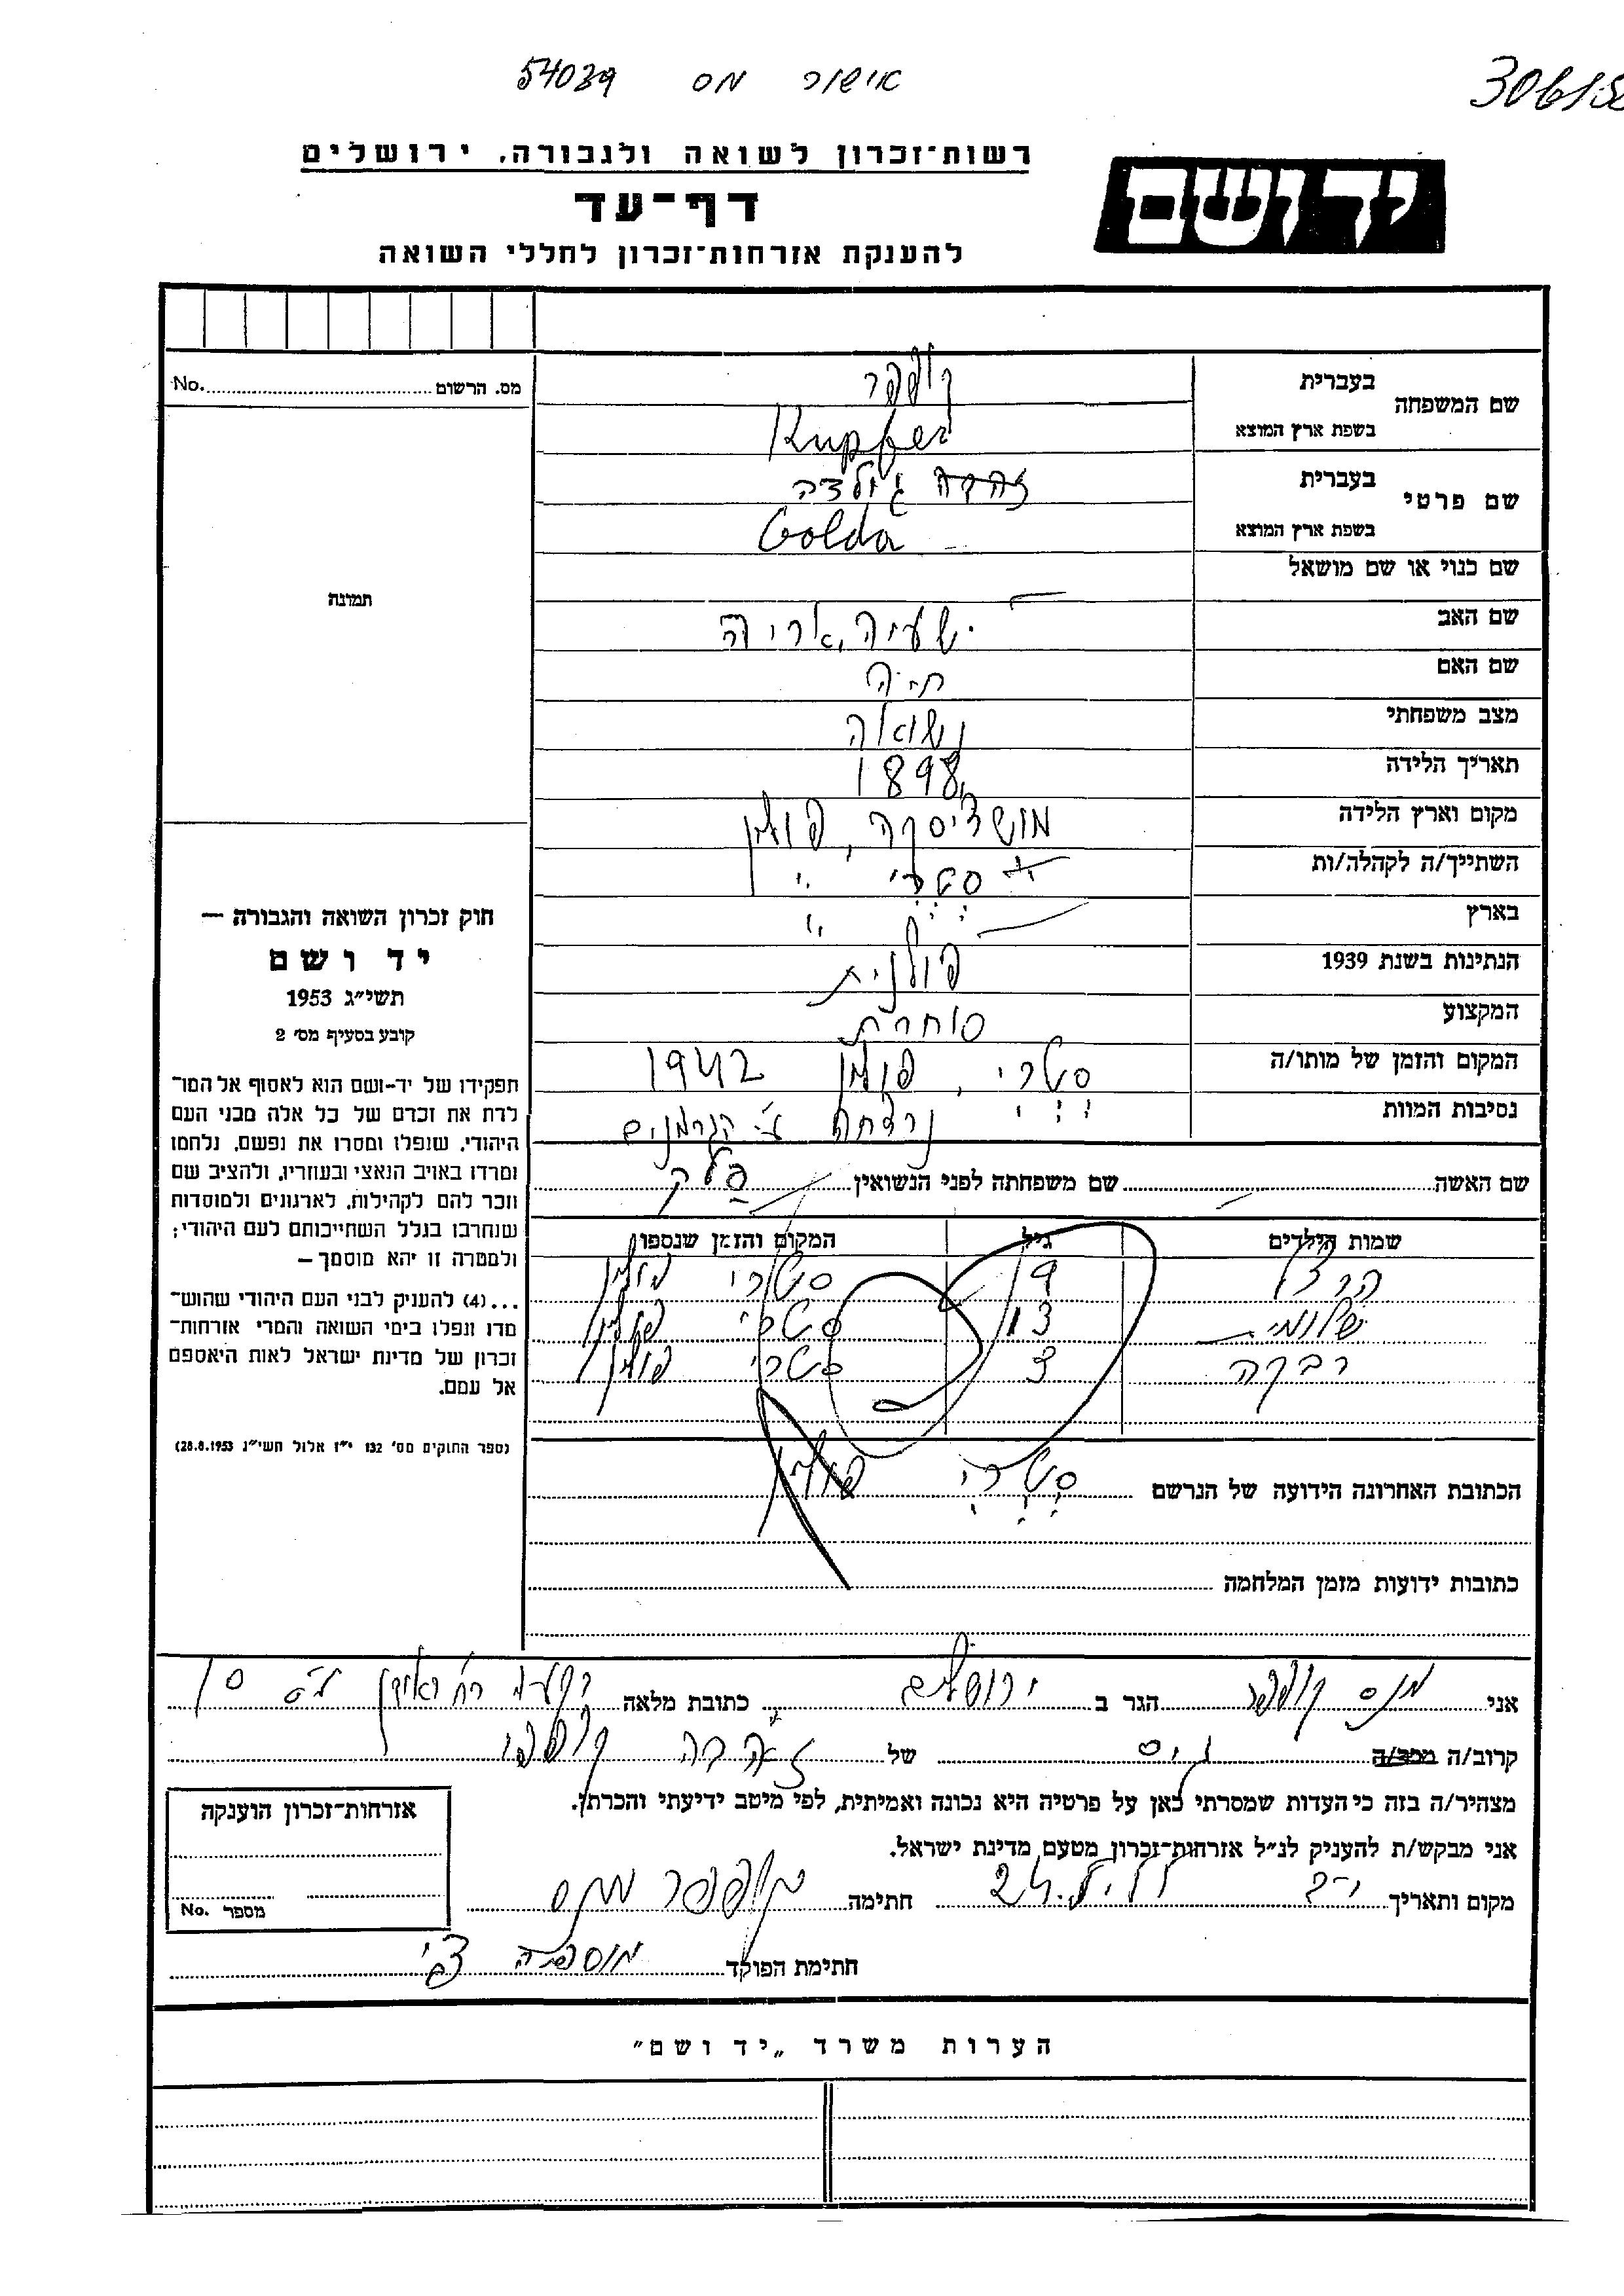 אישור מס 54039
30615
יד ושם
רשות־זכרון לשואה ולגבורה, ירושלים
דף־עד
להענקת אזרחות־זכרון לחללי השואה
מס. הרשום No.
תמונה
שם המשפחה
בעברית קופפר
בשפת ארץ המוצא Kupfer
שם פרטי
בעברית זהבה גולדה
בשפת ארץ המוצא Golda
שם כנוי או שם מושאל
שם האב ישעיה, אריה
שם האם חיה
מצב משפחתי נשואה
תאריך הלידה 1898
מקום וארץ הלידה מושציסקה, פולין
השתייך/ה לקהלה/ות סטרי
בארץ
הנתינות בשנת 1939 פולנית
המקצוע סוחרת
המקום והזמן של מותו/ה סטרי, פולין 1942
נסיבות המוות נרצחה ע״י הגרמנים
שם האשה שם משפחתה לפני הנשואין פלק
שמות הילדים גיל המקום והזמן שנספו
הרצל 19 סטרי פולין
שלומית 13 סטרי פולין
רבקה 3 סטרי פולין
הכתובת האחרונה הידועה של הנרשם סטרי פולין
כתובות ידועות מזמן המלחמה
חוק זכרון השואה והגבורה —
יד ושם
תשי״ג 1953
קובע בסעיף מס׳ 2
תפקידו של יד־ושם הוא לאסוף אל המו־
לדת את זכרם של כל אלה מבני העם
היהודי, שנפלו ומסרו את נפשם, נלחמו
ומרדו באויב הנאצי ובעוזריו, ולהציב שם
וזכר להם לקהילות, לארגונים ולמוסדות
שנחרבו בגלל השתייכותם לעם היהודי;
ולמטרה זו יהא מוסמך —
...(4) להעניק לבני העם היהודי שהוש־
מדו ונפלו בימי השואה והמרי אזרחות־
זכרון של מדינת ישראל לאות היאספם
אל עמם.
(ספר החוקים מס׳ 132 י״ז אלול תשי״ג 28.8.1953)
אני מנס קופפר הגר ב ירושלים כתובת מלאה
קרוב/ה מכר/ה גיס של זהבה קופפר
מצהיר/ה בזה כי העדות שמסרתי כאן על פרטיה היא נכונה ואמיתית, לפי מיטב ידיעתי והכרתי.
אני מבקש/ת להעניק לנ״ל אזרחות־זכרון מטעם מדינת ישראל.
מקום ותאריך חתימה קופפר מנס
חתימת הפוקד
אזרחות־זכרון הוענקה
מספר No.
הערות משרד „יד ושם״